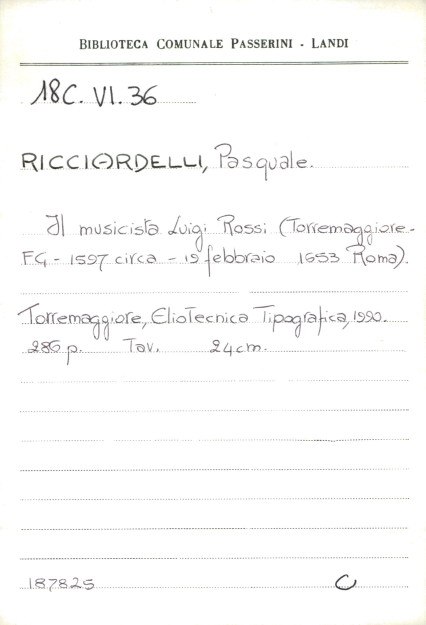 BIBLIOTECA COMUNALE PASSERINI - LANDI
18C. VI. 36
RICCIARDELLI, Pasquale.
Il musicista Luigi Rossi (Torremaggiore-
FG - 1597 circa - 19 febbraio 1653 Roma).
Torremaggiore, ElioTecnica Tipografica, 1990.
286 p. Tav. 24cm.
187825 C